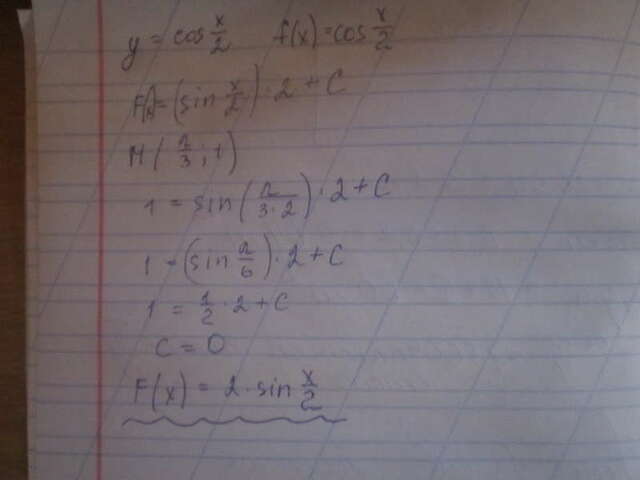 y = cos x/2 f(x) = cos x/2
F(x) = (sin x/2) · 2 + C
M (π/3 ; 1)
1 = sin (π/3·2) · 2 + C
1 = (sin π/6) · 2 + C
1 = 1/2 · 2 + C
C = 0
F(x) = 2 · sin x/2